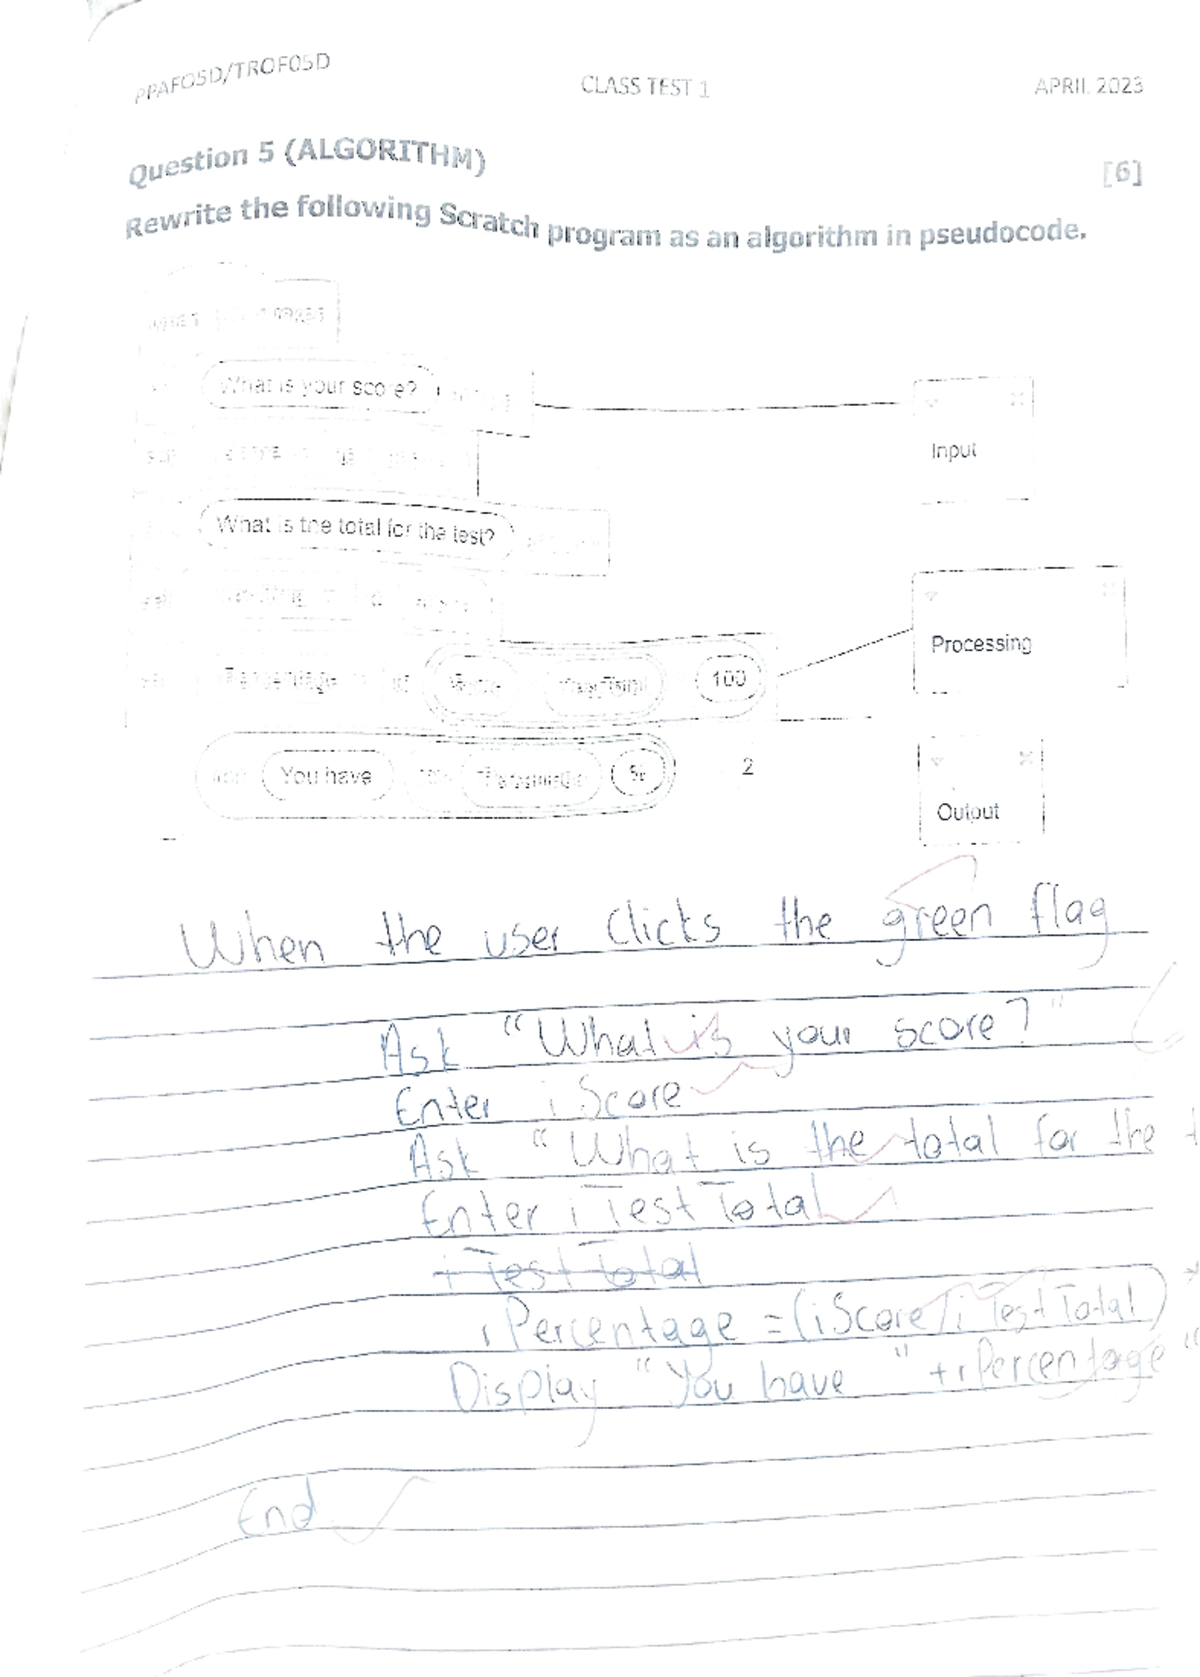 PPAFO5D/TROF05D CLASS TEST 1 APRIL 2023
Question 5 (ALGORITHM) [6]
Rewrite the following Scratch program as an algorithm in pseudocode.
What is your score?
Input
What is the total for the test?
Processing
Percentage 100
You have % 2
Output
When the user clicks the green flag
Ask "What is your score?"
Enter iScore
Ask "What is the total for the t
Enter iTestTotal
iTestTotal
iPercentage = (iScore/iTestTotal) *
Display "You have " + iPercentage "
End